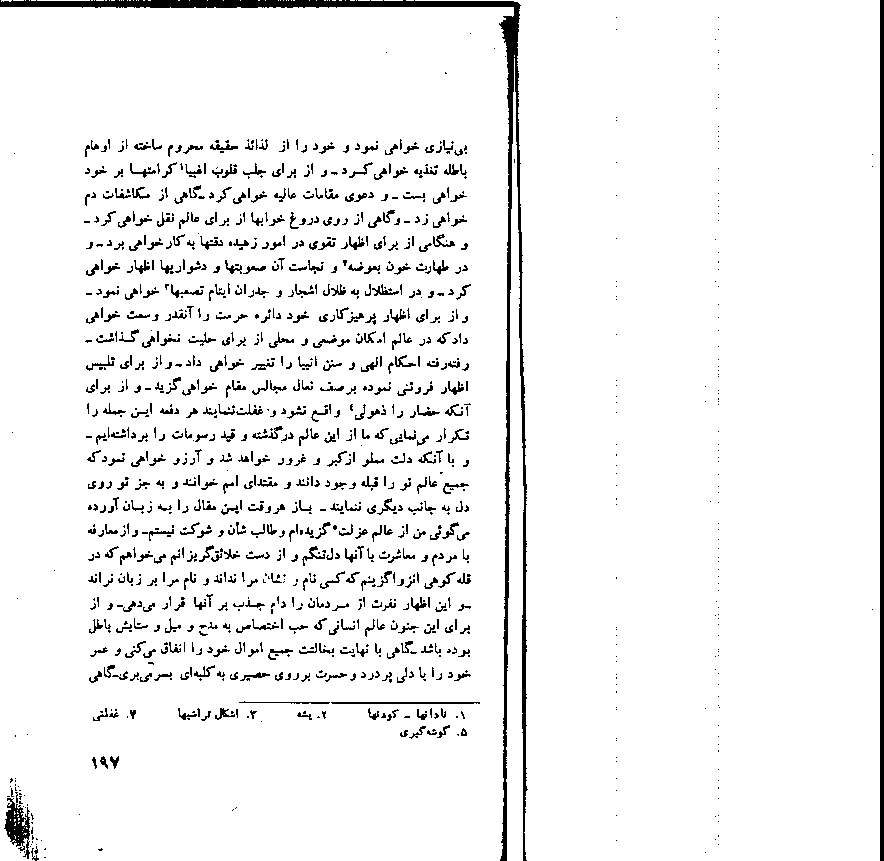 بی‌نیازی خواهی نمود و خود را از لذائذ حقیقه محروم ساخته از اوهام
باطله تغذیه خواهی‌کرد ــ و از برای جلب قلوب اغبیا۱ کرامتهـا بر خود
خواهی بست ــ و دعوی مقامات عالیه خواهی‌کرد ــ‌گاهی از مکاشفات دم
خواهی زد ــ وگاهی از روی دروغ خوابها از برای عالم نقل خواهی‌کرد ــ
و هنگامی از برای اظهار تقوی در امور زهیده دقتها به‌کارخواهی برد ــ و
در طهارت خون بعوضه۲ و نجاست آن صعوبتها و دشواریها اظهار خواهی
کرد ــ و در استظلال به ظلال اشجار و جدران ایتام تصعبها۳ خواهی نمود ــ
و از برای اظهار پرهیزکاری خود دائره حرمت را آنقدر وسعت خواهی
دادکه در عالم امکان موضعی و محلی از برای حلیت نخواهی گـذاشت ــ
رفته‌رفته احکام الهی و سنن انبیا را تغییر خواهی داد ــ و از برای تلبیس
اظهار فروتنی نموده برصف نعال مجالس مقام خواهی‌گزید ــ و از برای
آنکه حضار را ذهولی۴ واقـع نشود و غفلت‌ننمایند هر دفعه ایـن جمله را
تکـرار می‌نمایی‌که ما از این عالم درگذشته و قید رسومات را برداشته‌ایم ــ
و با آنکه دلت مملو ازکبر و غرور خواهد شد و آرزو خواهی نمودکه
جمیع عالم تو را قبله وجود دانند و مقتدای امم خوانند و به جز تو روی
دل به جانب دیگری ننمایند ــ باز هروقت ایـن مقال را بـه زبـان آورده
می‌گوئی من از عالم عزلت۵ گزیده‌ام و طالب شأن و شوکت نیستم‌ــ و ازمعارفه
با مردم و معاشرت با آنها دل‌تنگم و از دست خلائق‌گریزانم می‌خواهم‌که در
قله‌کوهی انزواگزینم‌که‌کسی نام و نشان مرا نداند و نام مرا بر زبان نراند
ــ و این اظهار نفرت از مـردمان را دام جـذب بر آنها قرار می‌دهی‌ــ و از
برای این جنون عالم انسانی‌که حب اختصاص به مدح و میل و ستایش باطل
بوده باشد ــ‌گاهی با نهایت بخالتت جمیع اموال خود را انفاق می‌کنی و عمر
خود را با دلی پردرد و حسرت برروی حصیری به‌کلبه‌ای بسرمی‌بری‌ــ‌گاهی
۱. نادانها ــ کودنها ۲. پشه ۳. اشکال تراشیها ۴. غفلتی
۵. گوشه‌گیری
۱۹۷